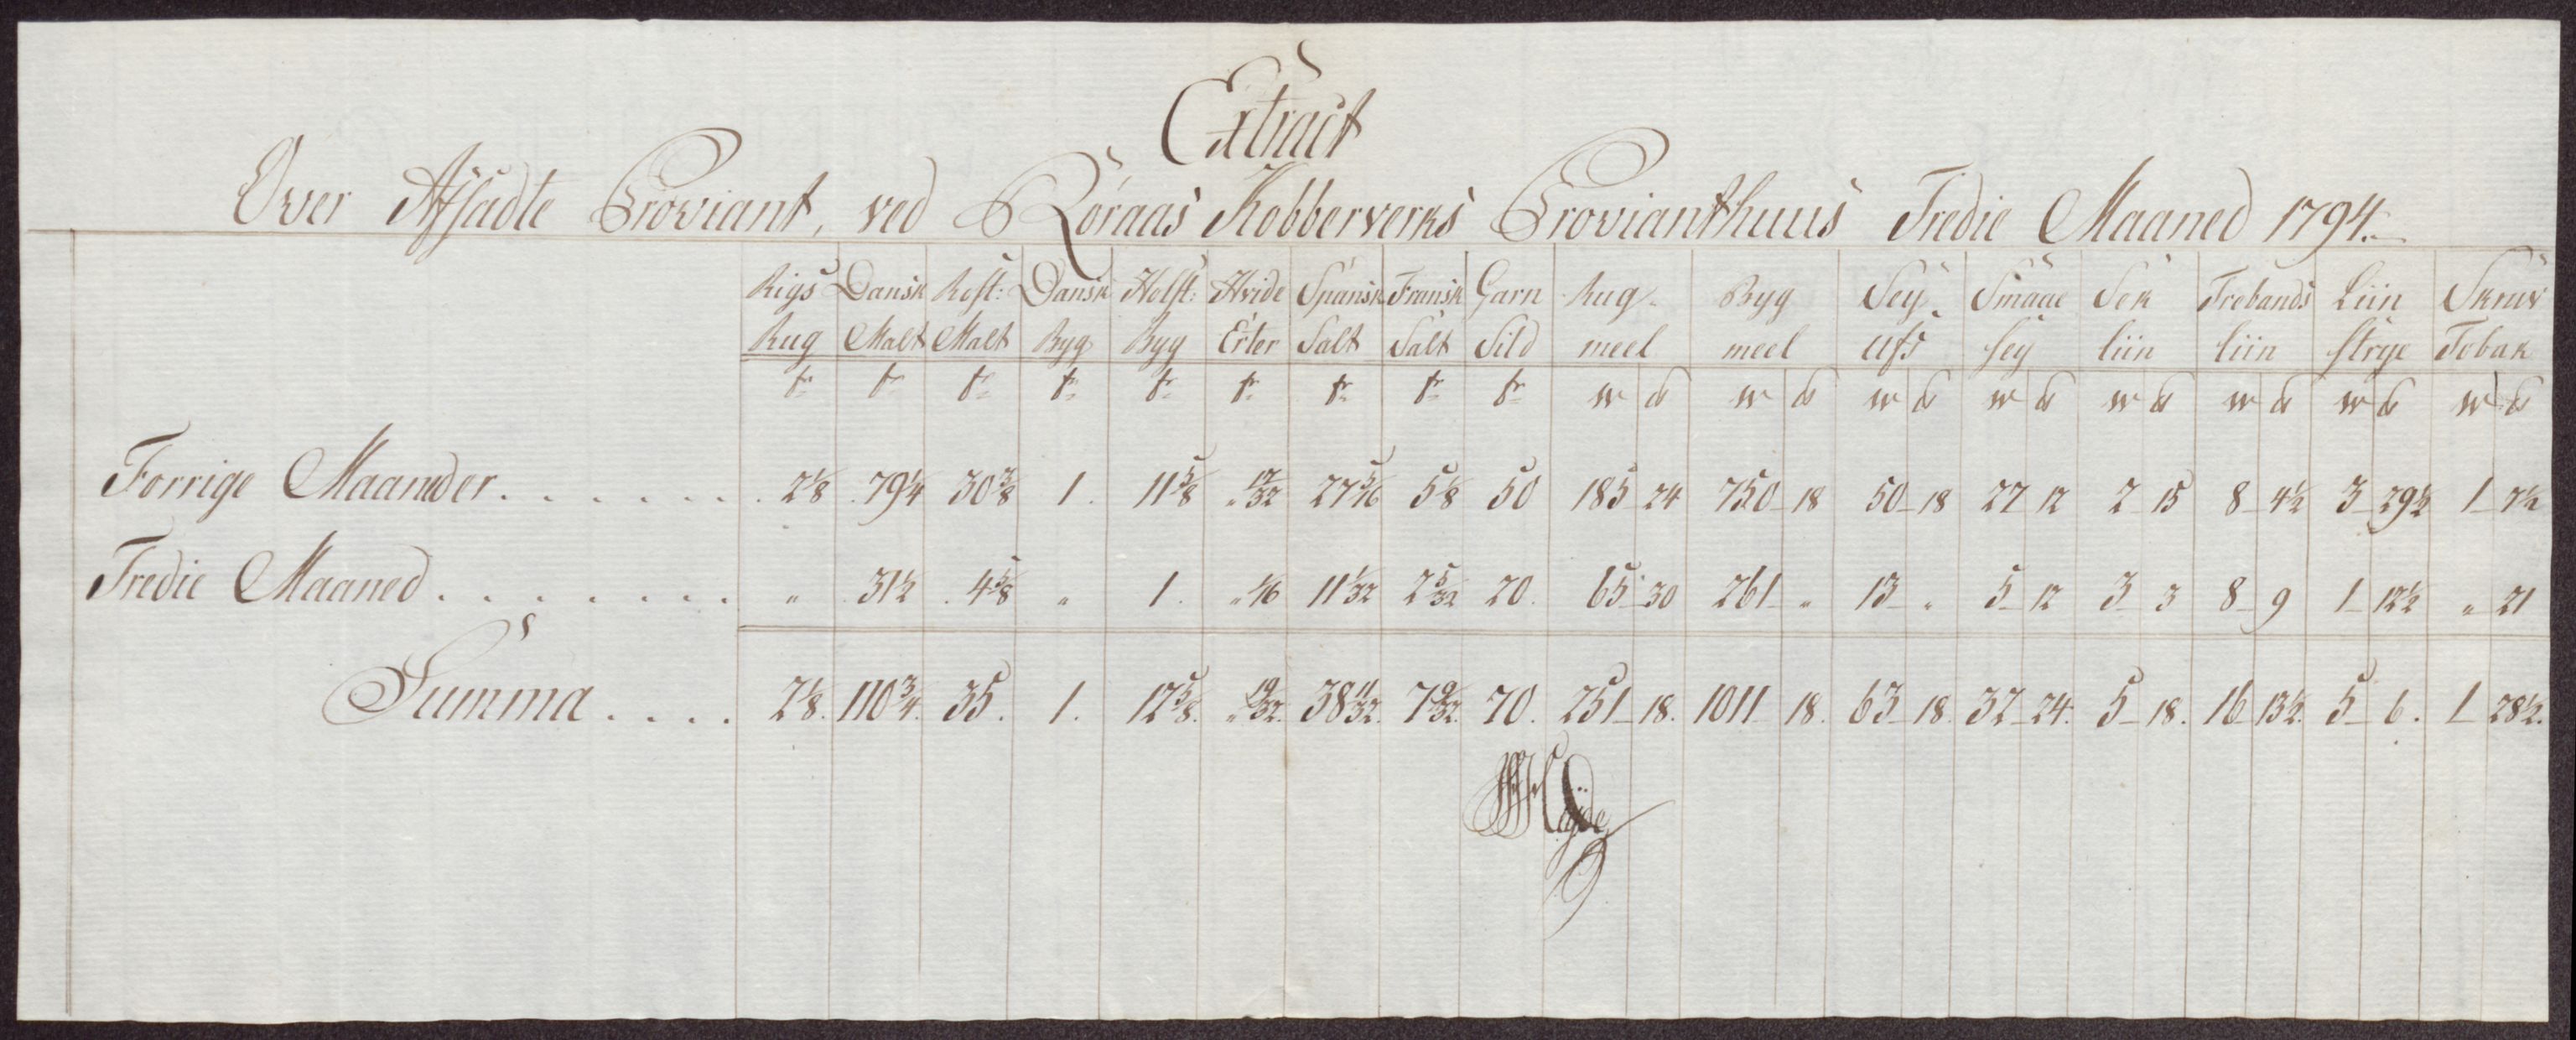 Extract
Over Afsadte Proviant, ved Röraas Kobberverks Provianthuus Tredie Maaned 1794.
Rigs Dansk Rost: Dansk Holst: Hvide Spansk Fransk Garn Rug Byg Sey Smaae Sek Trebands Liin Skruv
Rug Malt Malt Byg Byg Erter Salt Salt Sild meel meel Ufs sey liin liin strye Tobak
tr tr tr tr tr tr tr tr tr w ℔ w ℔ w ℔ w ℔ w ℔ w ℔ w ℔ w ℔
Forrige Maaneder . . . . . . . 2 1/8 79 1/4 30 3/8 1. 11 5/8 „ 17/32 27 5/16 5 1/8 50 185 24 750 18 50 18 27 12 2 15 8 4 1/2 3 29 1/2 1 7 1/2
Tredie Maaned . . . . . . . „ 31 1/2 4 5/8 „ 1. „ 1/16 11 1/32 2 5/32 20. 65 30 261 „ 13 „ 5 12 3 3 8 9 1 12 1/2 „ 21
Summa . . . . 2 1/8. 110 3/4. 35. 1. 12 5/8. „ 19/32. 38 11/32. 7 9/32. 70. 251 18. 1011 18. 63 18. 32 24. 5 18. 16 13 1/2. 5 6. 1 28 1/2.